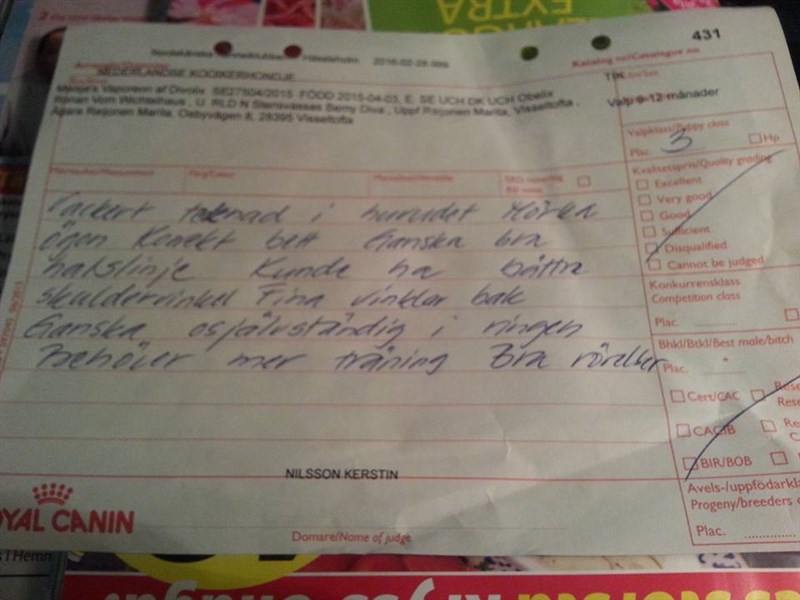 EXTRA
431
Nordskånska Kennelklubben Hässleholm 2016-02-28
Katalog nr/Catalogue no
NEDERLANDSE KOOIKERHONDJE
TIK
af Divolix SE27504/2015 FÖDD 2015-04-03, E. SE UCH DK UCH Obelix
Valp 9-12 månader
Vom Wichtelhaus, U. RLD N Stensvassas Berny Diva, Uppf Rejonen Marita, Visseltofta,
Ägare Rejonen Marita, Osbyvägen 8, 28395 Visseltofta
Valpklass/Puppy class
Plac. 3
Hp
Kvalitetspris/Quality grading
Excellent
Very good
Good
Sufficient
Disqualified
Cannot be judged
Vackert tecknad i huvudet Mörka
ögon Korrekt bett Ganska bra
halslinje Kunde ha bättre
skuldervinkel Fina vinklar bak
Ganska osjälvständig i ringen
Behöver mer träning Bra rörelser
Konkurrensklass
Competition class
Plac.
Bhkl/Btkl/Best male/bitch
Plac.
Cert/CAC
Rese
CACIB
BIR/BOB
NILSSON KERSTIN
ROYAL CANIN
Domare/Name of judge
Avels-/uppfödarkla
Progeny/breeders
Plac.